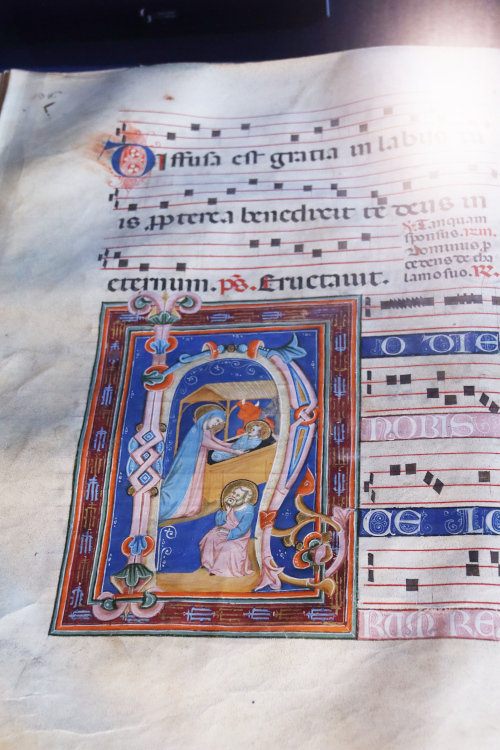 Diffusa est gratia in labiis tu
is ꝓpterea benedixit te deus in
eternum. ps. Eructauit.
℣. Tanquam
sponsus.
Dominus p
cedens de tha
lamo suo. ℟.
HO DIE
NOBIS
CE LO
RUM RE